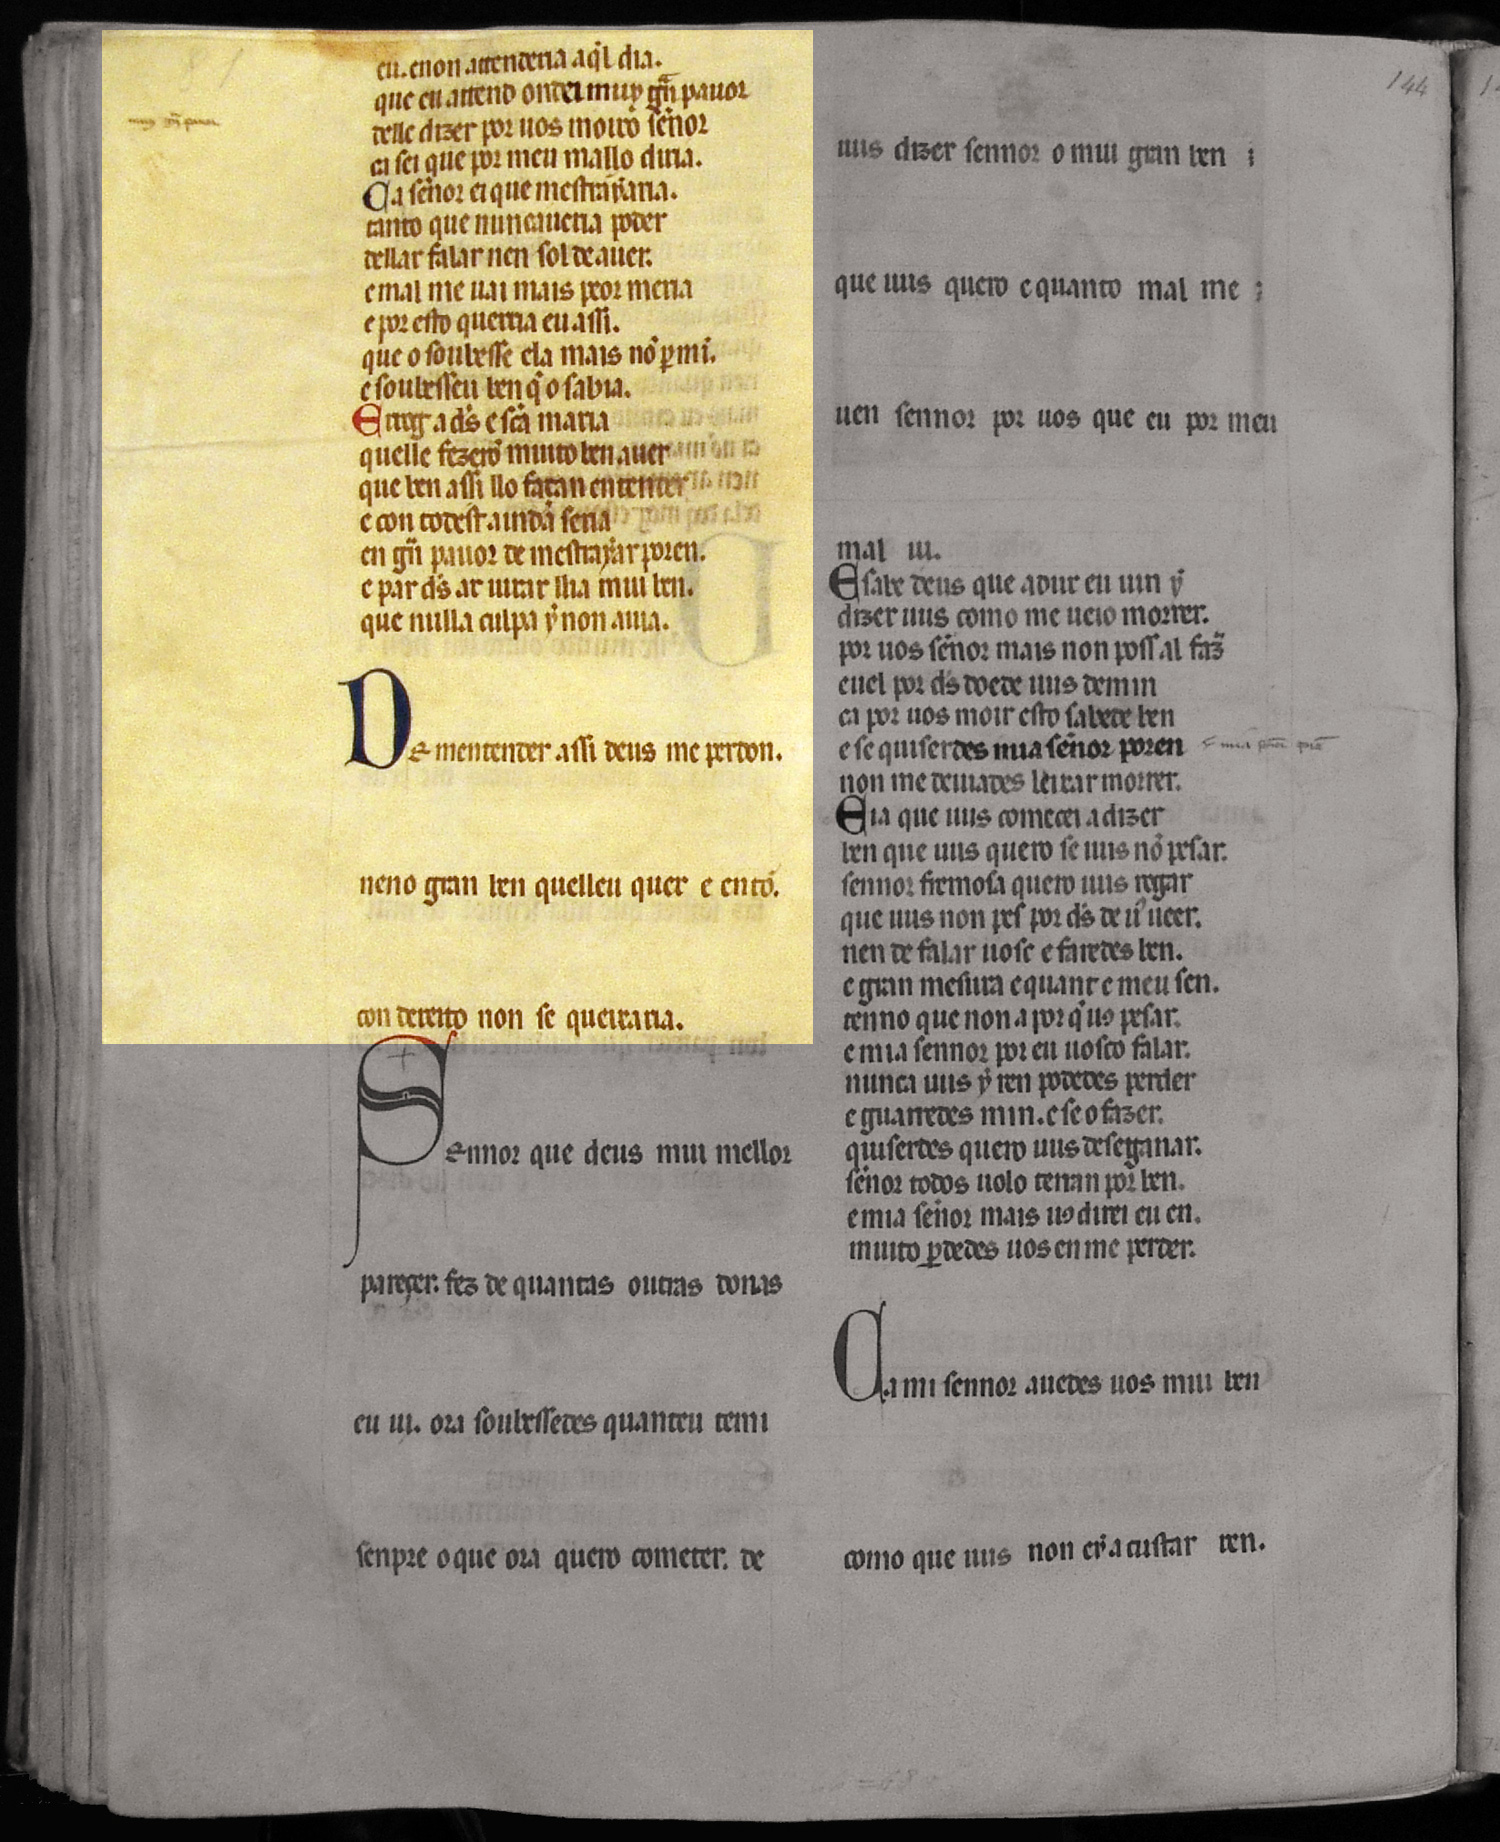 eu. enon attenderia aq̃l dia.
que eu attend ondei muy gñ pauor
delle dizer por uos moiro señor
ca sei que por meu mallo diria.
Ca señor ei que mestrãyaria.
tanto que nuncaueria poder
dellar falar nen sol deauer.
e mal me uai mais peor meria
e por esto querria eu assi.
que o soubesse ela mais nõ p̱ mĩ.
e soubesseu ben q̃ o sabia.
E rrog a d̃s e sc̃a maria
quelle fezerõ muito ben auer
que ben assi llo façan entender
e con todest aindã seria
en gñ pauor de mestrayar poren.
e par d̃s ar iurar llia mui ben.
que nulla culpa ẏ non auia.
De mentender assi deus me perdon.
neno gran ben quelleu quer e entõ.
con dereito non se queixaria.
Sennor que deus mui mellor
pareçer. fez de quantas outras donas
eu ui. ora soubessedes quanteu temi
senpre oque ora quero cometer. de
144
uus dizer sennor o mui gran ben
que uus quero e quanto mal me
uen sennor por uos que eu por meu
mal ui.
E sabe deus que adur eu uin ẏ
dizer uus como me ueio morrer.
por uos señor mais non poss al faz̃
euel por d̃s doede uus demin
ca por uos moir esto sabede ben
e se quiserdes mia señor poren
non me deuiades leixar morrer.
E ia que uus comecei a dizer
ben que uus quero se uus nõ pesar.
sennor fremosa quero uus rogar
que uus non pes por d̃s de u᷑ ueer.
nen de falar uosc e faredes ben.
e gran mesura e quant e meu sen.
tenno que non a por q̃ uꝰ pesar.
e mia sennor por eu uosco falar.
nunca uus ẏ ren podedes perder
e guarredes min. e se o fazer.
quiserdes quero uus desenganar.
señor todos uolo terran por ben.
e mia señor mais uꝰ direi eu en.
muito p̱dedes uos en me perder.
Ca mi sennor auedes uos mui ben
como que uus non er̃ a custar ren.